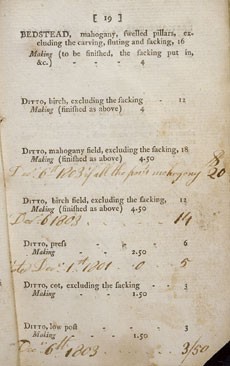 [ 19 ]
BEDSTEAD, mahogany, swelled pillars, ex-
cluding the carving, fluting and sacking, 16
Making (to be finished, the sacking put in,
&c.) - - 4
DITTO, birch, excluding the sacking - 12
Making (finished as above) 4
DITTO, mahogany field, excluding the sacking, 18
Making (finished as above) 4.50
Decr 6th 1803 if all the posts mahogany 20
DITTO, birch field, excluding the sacking, 12
Making (finished as above) 4.50
Decr 6 1803 14
DITTO, press - - 6
Making - - 2.50
Decr 1st 1801 0 5
DITTO, cot, excluding the sacking - - 3
Making - - 1.50
DITTO, low post - - 3
Making - - 1.50
Decr 6th 1803 3/50